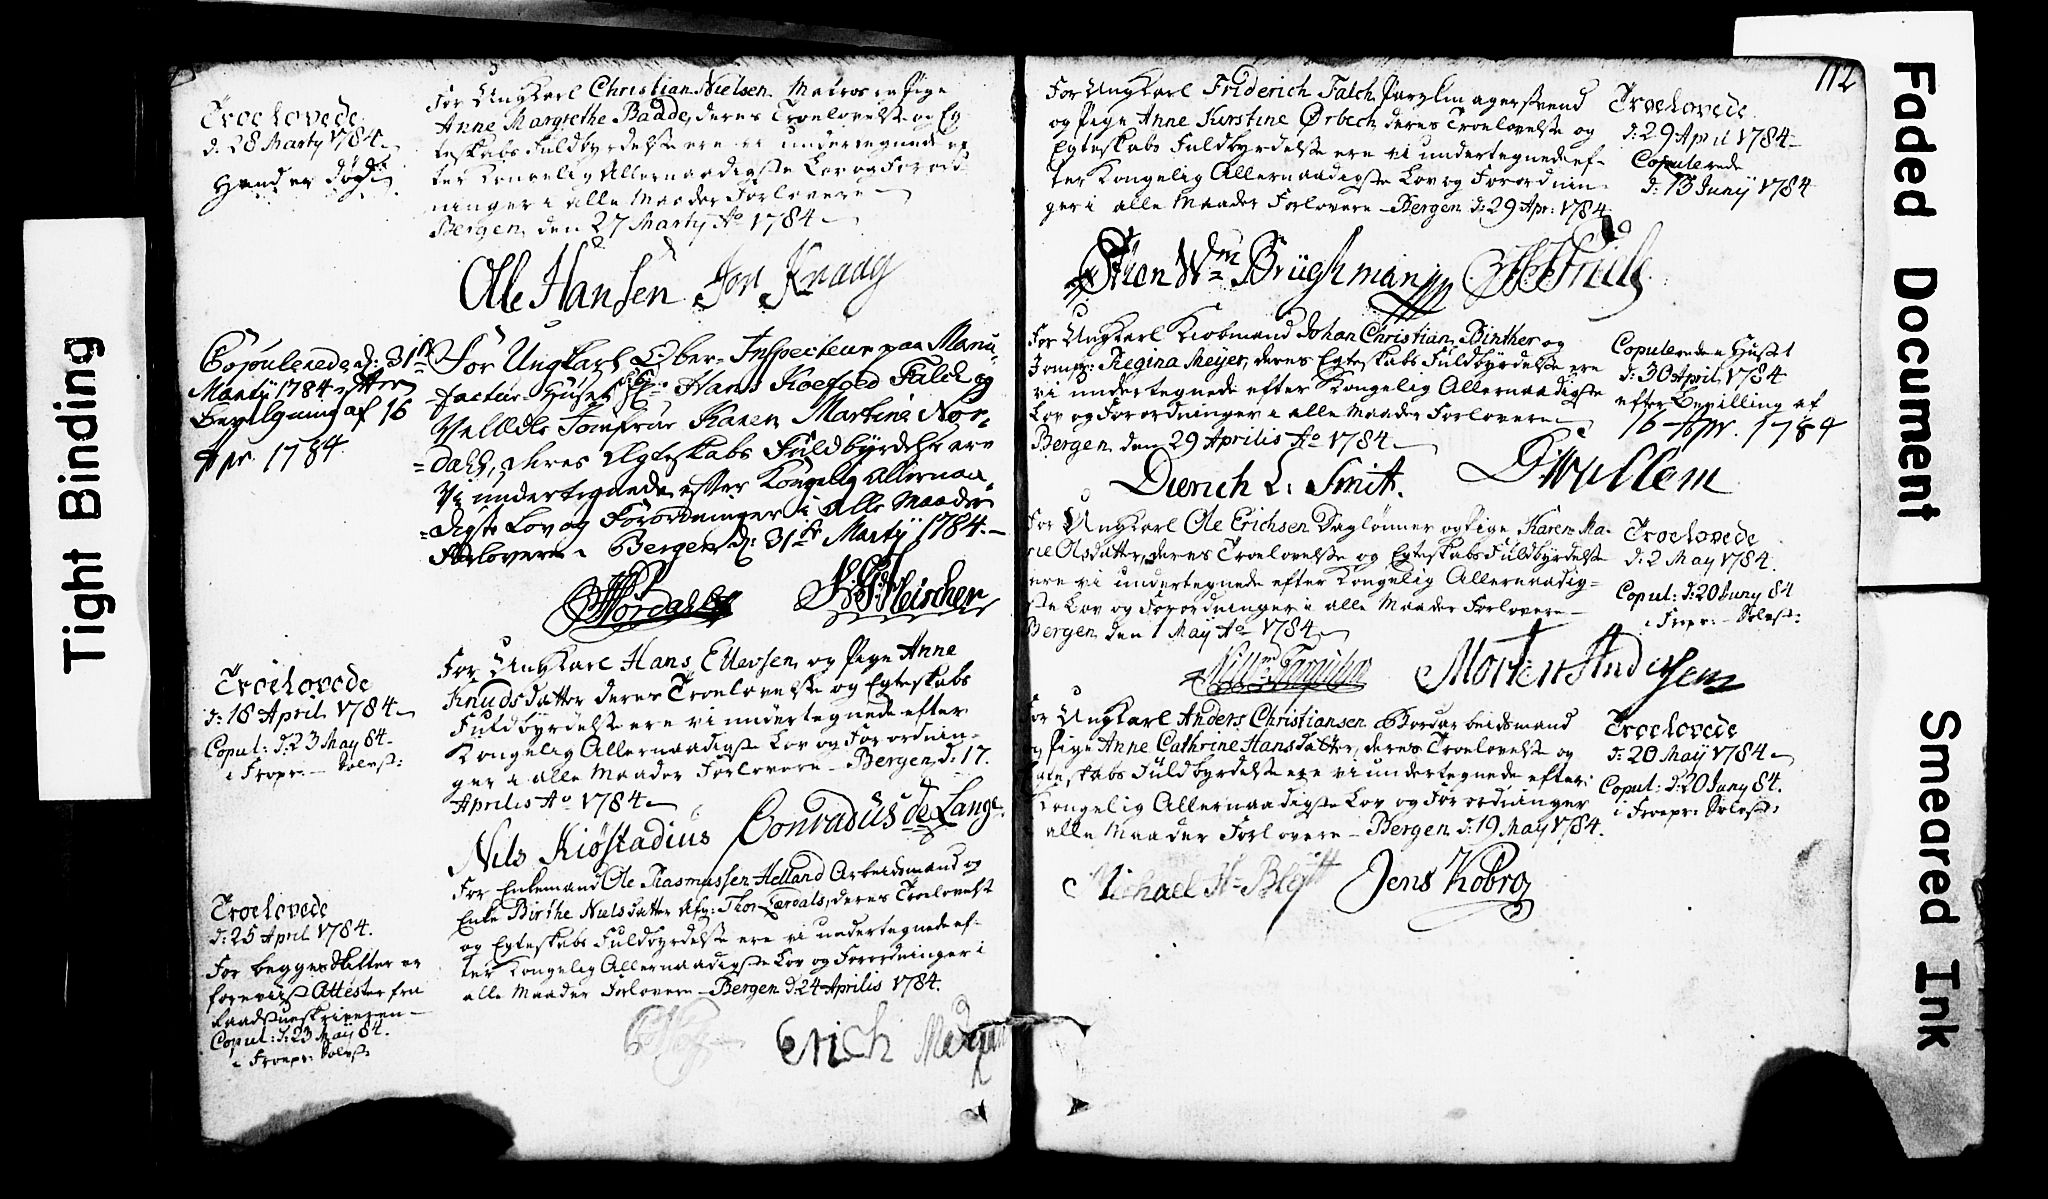 Tight Binding
Troelovede
d. 28 Marty 1784.
Hand er død
For Ungkarl Christian Nielsen Matros og Pige
Anne Margrethe Badde, deres Troelovelse og Eg-
teskabs Fuldbyrdelse ere vi undertegnede ef-
ter Kongelig Allernaadigste Lov og Forord-
ninger i alle Maader Forlovere
Bergen, den 27 Marty Ao 1784
Ole Hansen Jon Knaag
Copulerede d: 31te
Marty 1784 efter
Bevilgning af 16
Apr. 1784.
For Ungkarl Ober-Inspecteur paa Manu-
factur Huset Hr. Hans Koefoed Falck og
Velædle Jomfrue Karen Martine Nor-
dahl, deres Ægteskabs Fuldbyrdelse ere
Vi undertegnede efter Kongelig Allernaa-
digste Lov og Forordninger i Alle Maader
Forlovere. Bergen d: 31te Martÿ 1784.
Nordahl Fleischer
Troelovede
d: 18 April 1784
Copul: d: 23 May 84
i Froepr:
For Ungkarl Hans Ellevsen og Pige Anne
Knudsdatter deres Troelovelse og Egteskabs
Fuldbyrdelse ere vi undertegnede efter
Kongelig Allernaadigste Lov og Forordnin-
ger i alle Maader Forlovere Bergen, d: 17.
Aprilis Ao 1784
Nils Kiøstadius Conradus de Lange
Troelovede
d: 25 April 1784.
For begges Skifter er
foreviist Attester fra
Raadstueskriveren
Copul: d: 23 Maÿ 84.
i Froepr:
For Enkemand Ole Rasmussen Helland Arbeidsmand og
Enke Birthe Nielsdatter Afg: Thor Lærdals, deres Troelovelse
og Egteskabs Fuldbyrdelse ere vi undertegnede ef-
ter Kongelig Allernaadigste Lov og Forordninger i
alle Maader Forlovere Bergen d. 24 Aprilis 1784.
Erich
112
For Ungkarl Friderich Falch og
og Pige Anne Kirstine Ørbech deres Troelovelse og
Egteskabs Fuldbyrdelse ere vi undertegnede ef-
ter Kongelig Allernaadigste Lov og Forordnin-
ger i alle Maader Forlovere Bergen d: 29 Apr: 1784
Troelovede
d: 29 April 1784
Copulerede
d: 13 Junÿ 1784
Johan Wm Brüghman
For Ungkarl Kiobmand Johan Christian Binther og
Jomfr: Regina Meÿer, deres Egteskabs Fuldbyrdelse ere
vi undertegnede efter Kongelig Allernaadigste
Lov og Forordninger i alle Maader Forlovere
Bergen den 29 Aprilis Ao 1784
Copulerede i Huset
d: 30 April 1784
efter Bevilling af
16 Apr. 1784
Dierich L. Smitt.
For Ungkarl Ole Erichsen Daglønner og Pige Karen Ma-
rie Olsdatter, deres Troelovelse og Egteskabs Fuldbyrdelse
ere vi undertegnede efter Kongelig Allernaadig-
ste Lov og Forordninger i alle Maader Forlovere
Bergen den 1 Maÿ Ao 1784
Troelovede
d: 2 May 1784.
Copul: d: 20 Juny 84
i Froepr:
Morten Andersen
For Ungkarl Anders Christiansen Bordarbeidsmand
og Pige Anne Cathrine Hansdatter, deres Troelovelse og
Egteskabs Fuldbyrdelse ere vi undertegnede efter
Kongelig Allernaadigste Lov og Forordninger
i alle Maader Forlovere Bergen d: 19 May 1784.
Troelovede
d: 20 Maÿ 1784
Copul: d: 20 Juny 84.
i Froepr:
Michael H Blÿtt Jens Kobro
Faded Document
Smeared Ink